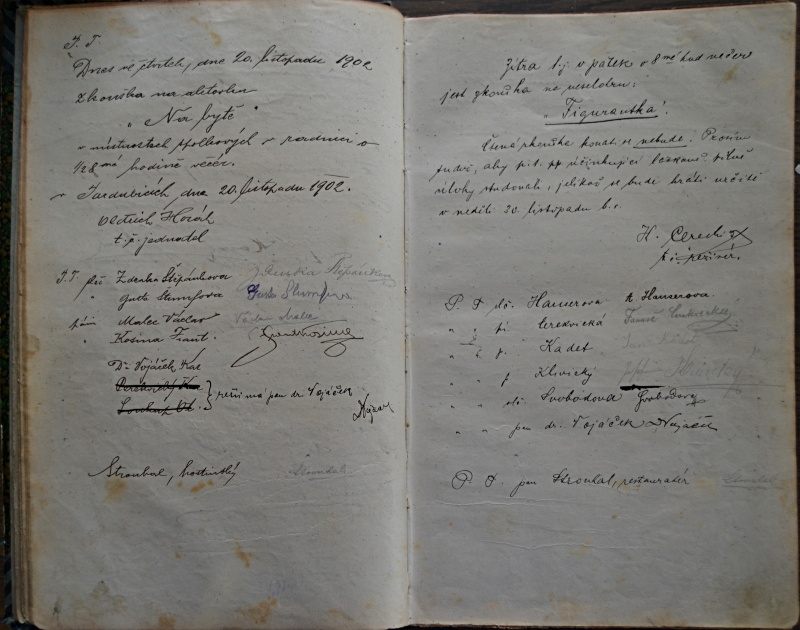 P. T.
Dnes ve čtvrtek, dne 20. listopadu 1902
zkouška na aktovku
„Na bytě"
v místnostech spolkových v radnici o
1/2 8 mé hodině večer.
v Pardubicích, dne 20. listopadu 1902.
Oldřich Horák
t. č. jednatel
P. T. Zdenka Štěpánkova Zdenka Štěpánkova
" Gusta Štumfova Gusta Štumfova
páni Malec Václav Václav Malec
" Kosina Frant. Frant Kosina
Dr Vojáček Kar
Soukup
režii má pan dr. Vojáček
Stroubal, hostinský
Zítra t. j. v pátek o 8 mé hod večer
jest zkouška na veselohru:
„Figurantka".
Čtená zkouška konati se nebude. Prosím
tudíž, aby p. t. pp účinkující pilně
úlohy studovali, jelikož se bude hráti určitě
v neděli 30. listopadu b. r.
H.
t. č. režisér.
P. T. slč. Hanserova A Hanserova.
" " Cerekvická
" " p. Kadet
" " p Klivický
" " slč. Svobodova Svobodova
" " pan dr. Vojáček Dr Vojáček
P. T. pan Stroubal, restauratér